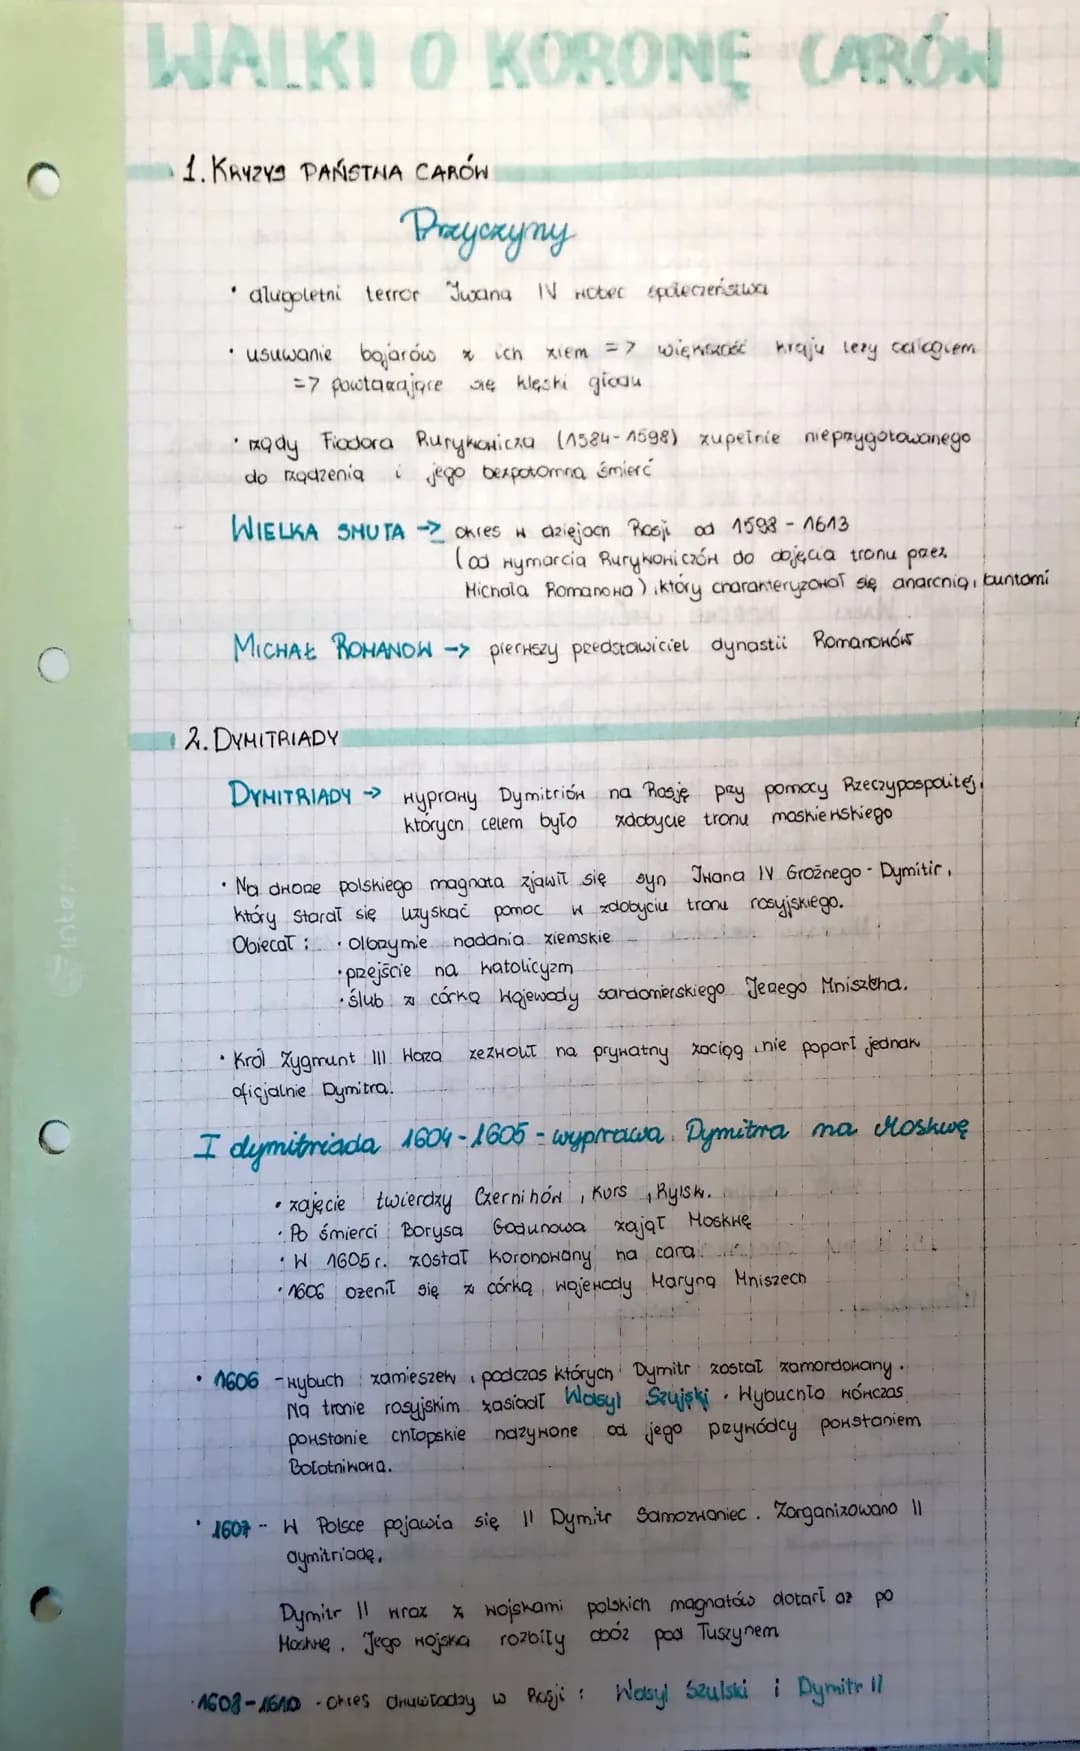 WALKI O KORONĘ CARÓW
1. KRYZYS PAŃSTWA CARÓW
Przyczyny
• długoletni terror Iwana IV wobec społeczeństwa
• usuwanie bojarów z ich ziem => większość kraju leży odłogiem
=> powtarzające się klęski głodu
• rządy Fiodora Rurykowicza (1584-1598) zupełnie nieprzygotowanego
do rządzenia i jego bezpotomna śmierć
WIELKA SMUTA -> okres w dziejach Rosji od 1598 - 1613
(od wymarcia Rurykowiczów do objęcia tronu przez
Michała Romanowa), który charakteryzował się anarchią, buntami
MICHAŁ ROMANOW -> pierwszy przedstawiciel dynastii Romanowów
2. DYMITRIADY
DYMITRIADY -> wyprawy Dymitrów na Rosję przy pomocy Rzeczypospolitej,
których celem było zdobycie tronu moskiewskiego
• Na dworze polskiego magnata zjawił się syn Iwana IV Groźnego - Dymitir,
który starał się uzyskać pomoc w zdobyciu tronu rosyjskiego.
Obiecał: • olbrzymie nadania ziemskie
• przejście na katolicyzm
• ślub z córką wojewody sandomierskiego Jerzego Mniszcha.
• Król Zygmunt III Waza zezwolił na prywatny zaciąg, nie poparł jednak
oficjalnie Dymitra.
I dymitriada 1604-1605 - wyprawa Dymitra na Moskwę
• zajęcie twierdzy Czernihów, Kurs, Rylsk.
• Po śmierci Borysa Godunowa zajął Moskwę
• W 1605 r. został koronowany na cara.
• 1606 ożenił się z córką wojewody Maryną Mniszech
• 1606 - wybuch zamieszek, podczas których Dymitr został zamordowany.
Na tronie rosyjskim zasiadł Wasyl Szujski. Wybuchło wówczas
powstanie chłopskie nazywane od jego przywódcy powstaniem
Bołotnikowa.
• 1607 - W Polsce pojawia się II Dymitr Samozwaniec. Zorganizowano II
dymitriadę.
Dymitr II wraz z wojskami polskich magnatów dotarł aż po
Moskwę. Jego wojska rozbiły obóz pod Tuszynem
• 1608-1610 - okres dwuwładzy w Rosji: Wasyl Szulski i Dymitr II
inter